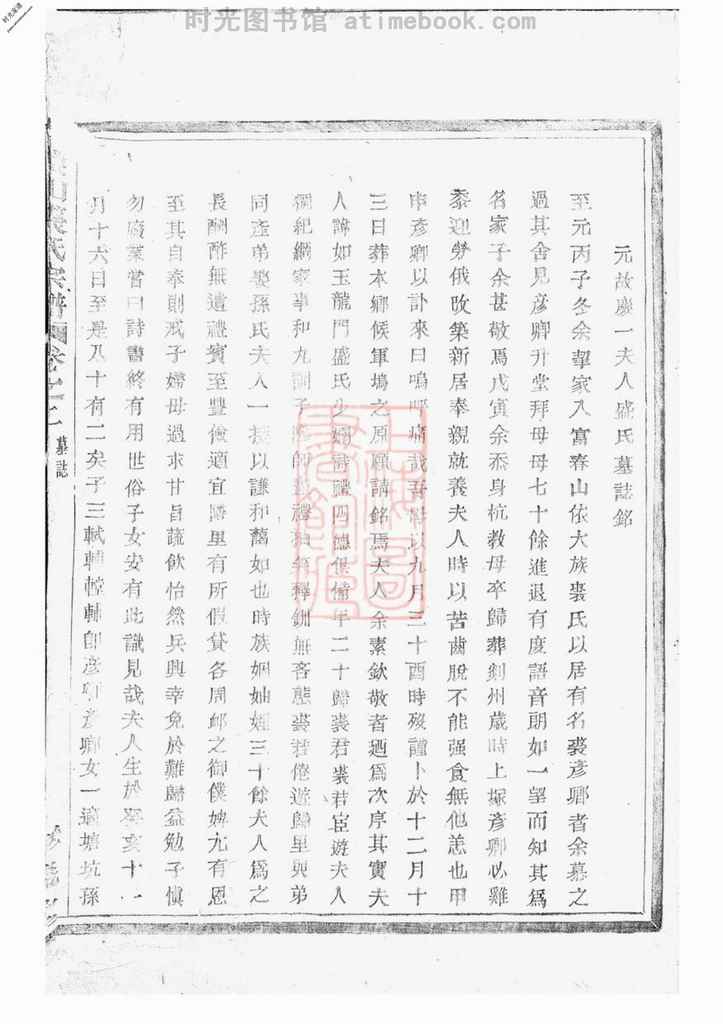 时光图书馆 atimebook.com
元故慶一夫人盛氏墓誌銘
至元丙子冬余挈家入富春山依大族裘氏以居有名裘彥卿者余慕之
過其舍見彥卿升堂拜母母七十餘進退有度語音朗如一望而知其爲
名家子余甚敬焉戊寅余忝身杭教母卒歸葬剡州歲時上塚彥卿必雞
黍迎勞俄改築新居奉親就養夫人時以苦齒脫不能强食無他恙也甲
申彥卿以訃來曰嗚呼痛哉吾母以九月三十酉時歿謹卜於十二月十
三日葬本鄉候軍塢之原願請銘焉夫人余素欽敬者廼爲次序其實夫
人諱如玉龍門盛氏少嫺詩禮四德俱備年二十歸裘君裘君宦遊夫人
綱紀綱家事和丸訓子隆師重禮釋釧無吝態裘君倦遊歸里與弟
同產弟娶孫氏夫人一接以謙和舊如也時族姻妯娌三十餘夫人爲之
長酬酢無遺禮賓至豐儉適宜隣里有所假貸各周卹之御僕婢尤有恩
至其自奉則戒子婦毋過求甘旨蔬飲怡然兵興幸免於難歸益勉子愼
勿廢業嘗曰詩書終有用世俗子女安有此識見哉夫人生於癸亥十一
月十六日至是八十有二矣子三軾輔轅輔卽彥卿女一適塘坑孫
山裘氏宗譜 墓誌